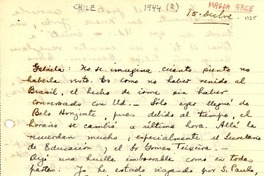 CHILE 1944. (2) MAGDA ARCE
15-Octubre. 1125
Gabriela: No se imagina cuánto siento no
haberla visto. Es como no haber venido al
Brasil, el hecho de irme sin haber
conversado con Ud. – Sólo ayer llegué de
Belo Horizonte, pues debido al tiempo, el
horario se cambió a última hora. Allí la
recuerdan mucho, especialmente, el Secretario
de Educación, y el Sr Gomes Teixeira. –
Aquí una huella imborrable como en todas
partes. Yo he estado viajando por S. Paulo,